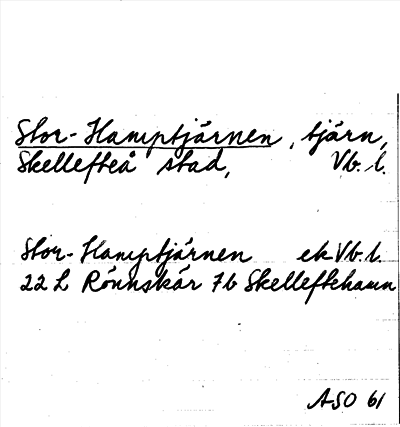 Stor-Hamptjärnen, tjärn,
Skellefteå stad, Vb. l.
Stor-Hamptjärnen ek Vb. l.
22 L Rönnskär 7b Skelleftehamn
ASO 61